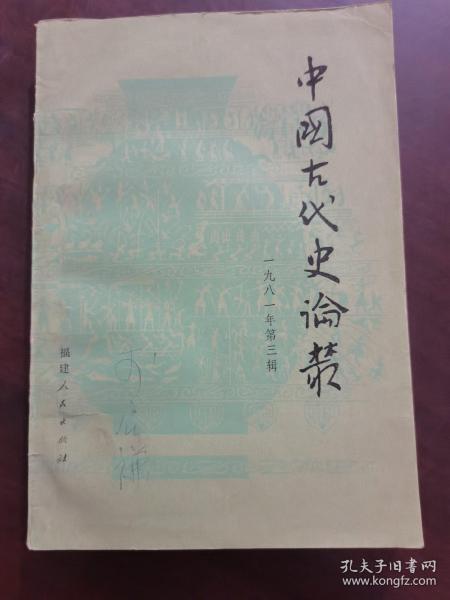 中國古代史論叢
一九八一年第三辑
福建人民出版社
孔夫子旧书网
www.kongfz.com